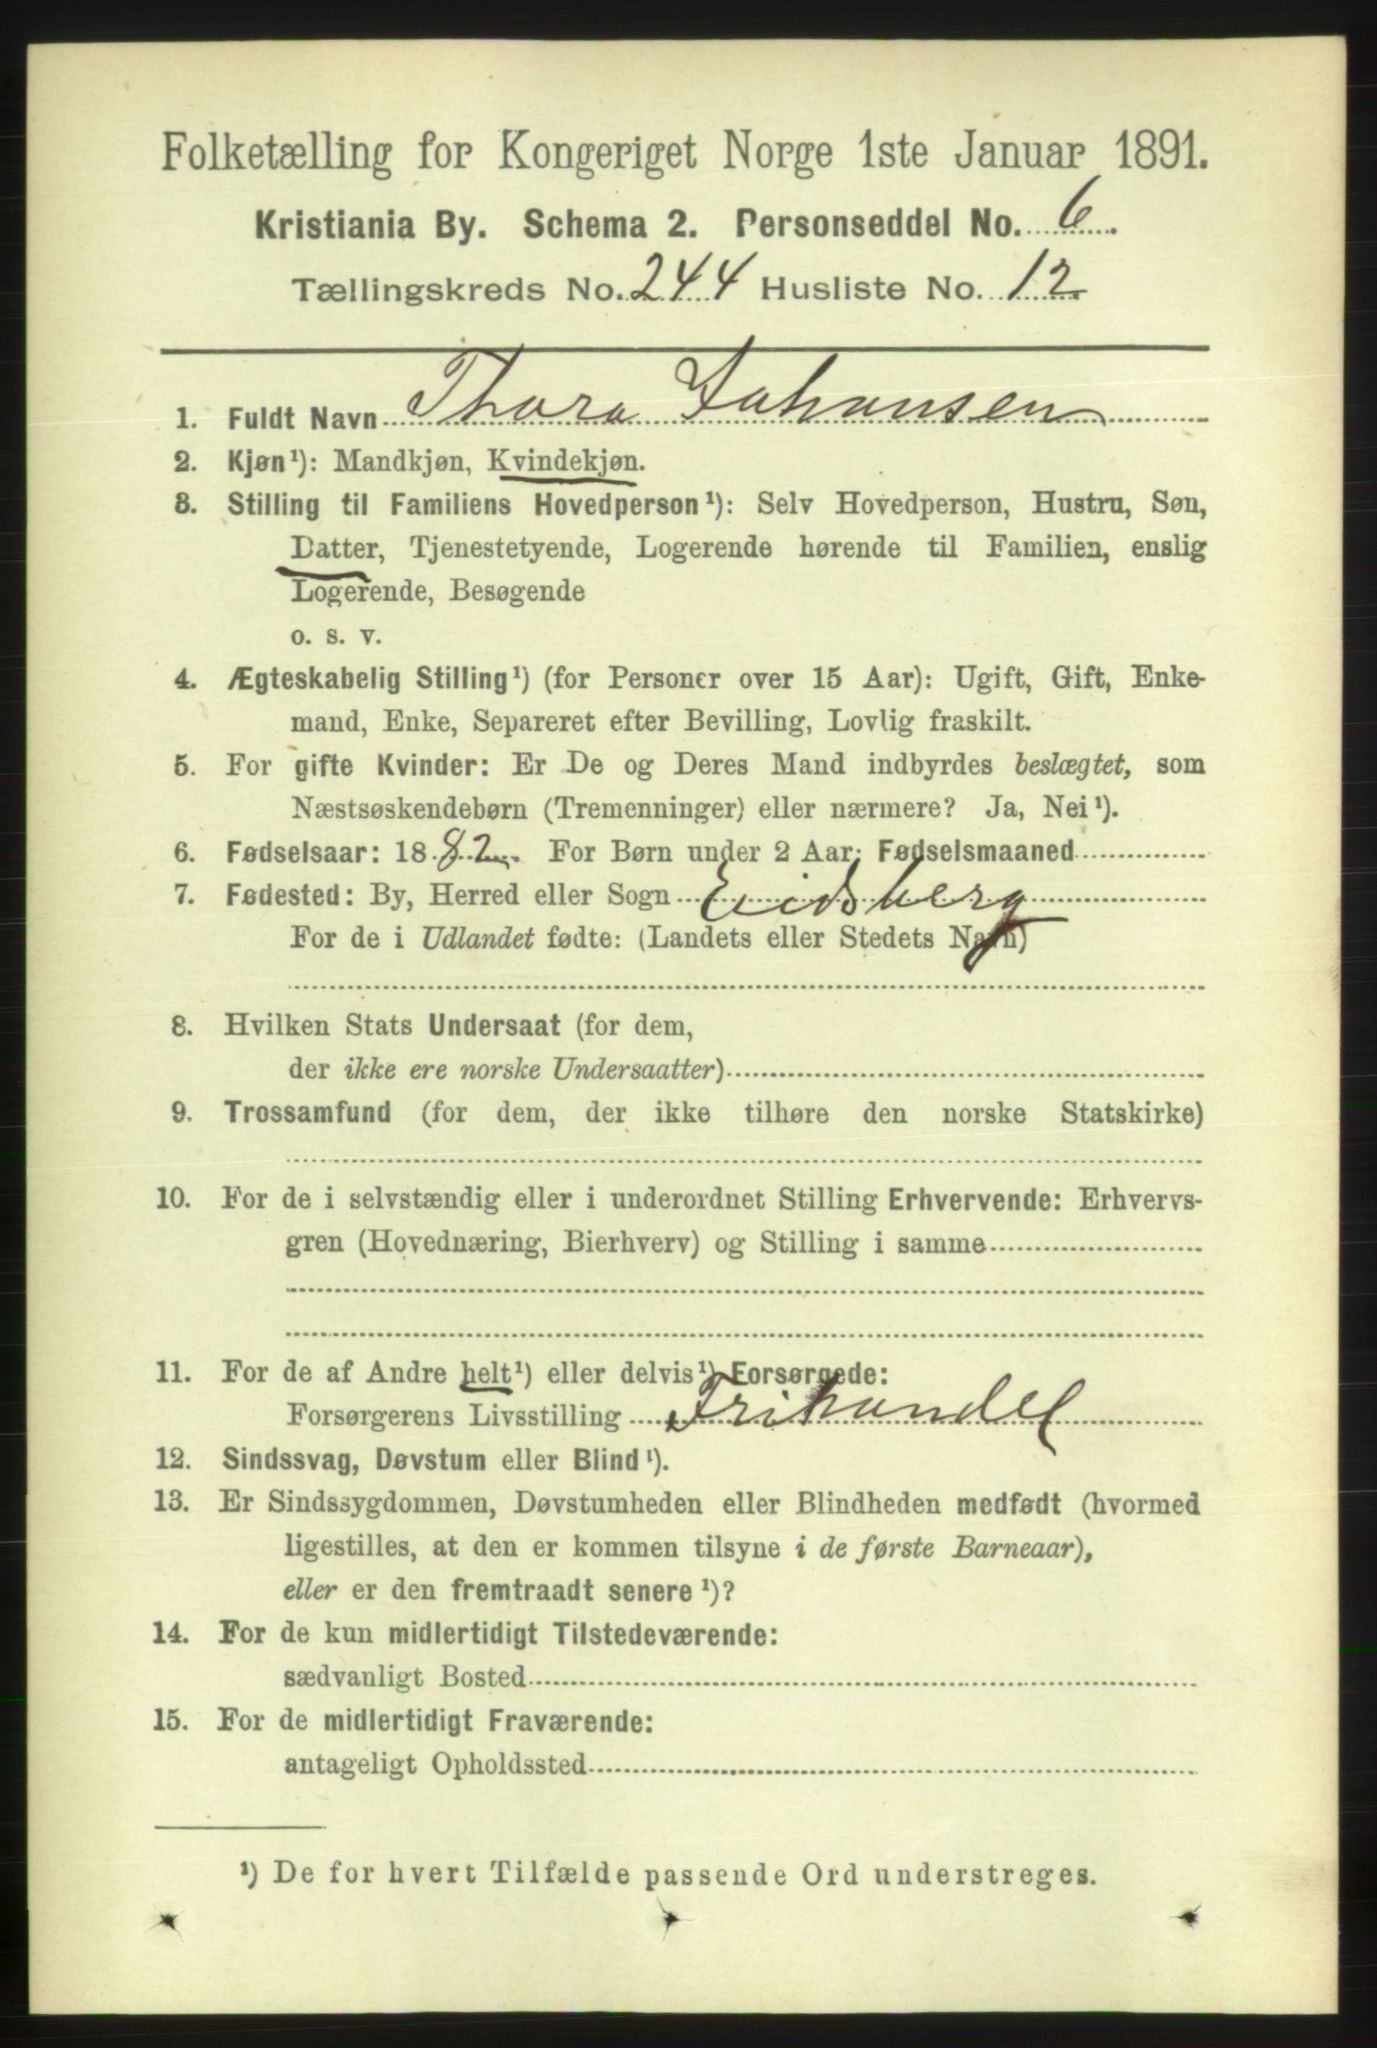 Folketælling for Kongeriget Norge 1ste Januar 1891.
Kristiania By. Schema 2. Personseddel No. 6.
Tællingskreds No. 244 Husliste No. 12
1. Fuldt Navn Thora Johansen
2. Kjøn¹): Mandkjøn, Kvindekjøn.
3. Stilling til Familiens Hovedperson¹): Selv Hovedperson, Hustru, Søn,
Datter, Tjenestetyende, Logerende hørende til Familien, enslig
Logerende, Besøgende
o. s. v.
4. Ægteskabelig Stilling¹) (for Personer over 15 Aar): Ugift, Gift, Enke-
mand, Enke, Separeret efter Bevilling, Lovlig fraskilt.
5. For gifte Kvinder: Er De og Deres Mand indbyrdes beslægtet, som
Næstsøskendebørn (Tremenninger) eller nærmere? Ja, Nei¹).
6. Fødselsaar: 1882. For Børn under 2 Aar: Fødselsmaaned
7. Fødested: By, Herred eller Sogn Eidsberg
For de i Udlandet fødte: (Landets eller Stedets Navn)
8. Hvilken Stats Undersaat (for dem,
der ikke ere norske Undersaatter)
9. Trossamfund (for dem, der ikke tilhøre den norske Statskirke)
10. For de i selvstændig eller i underordnet Stilling Erhvervende: Erhvervs-
gren (Hovednæring, Bierhverv) og Stilling i samme
11. For de af Andre helt¹) eller delvis¹) Forsørgede:
Forsørgerens Livsstilling Frihandel
12. Sindssvag, Døvstum eller Blind¹).
13. Er Sindssygdommen, Døvstumheden eller Blindheden medfødt (hvormed
ligestilles, at den er kommen tilsyne i de første Barneaar),
eller er den fremtraadt senere¹)?
14. For de kun midlertidigt Tilstedeværende:
sædvanligt Bosted
15. For de midlertidigt Fraværende:
antageligt Opholdssted
¹) De for hvert Tilfælde passende Ord understreges.